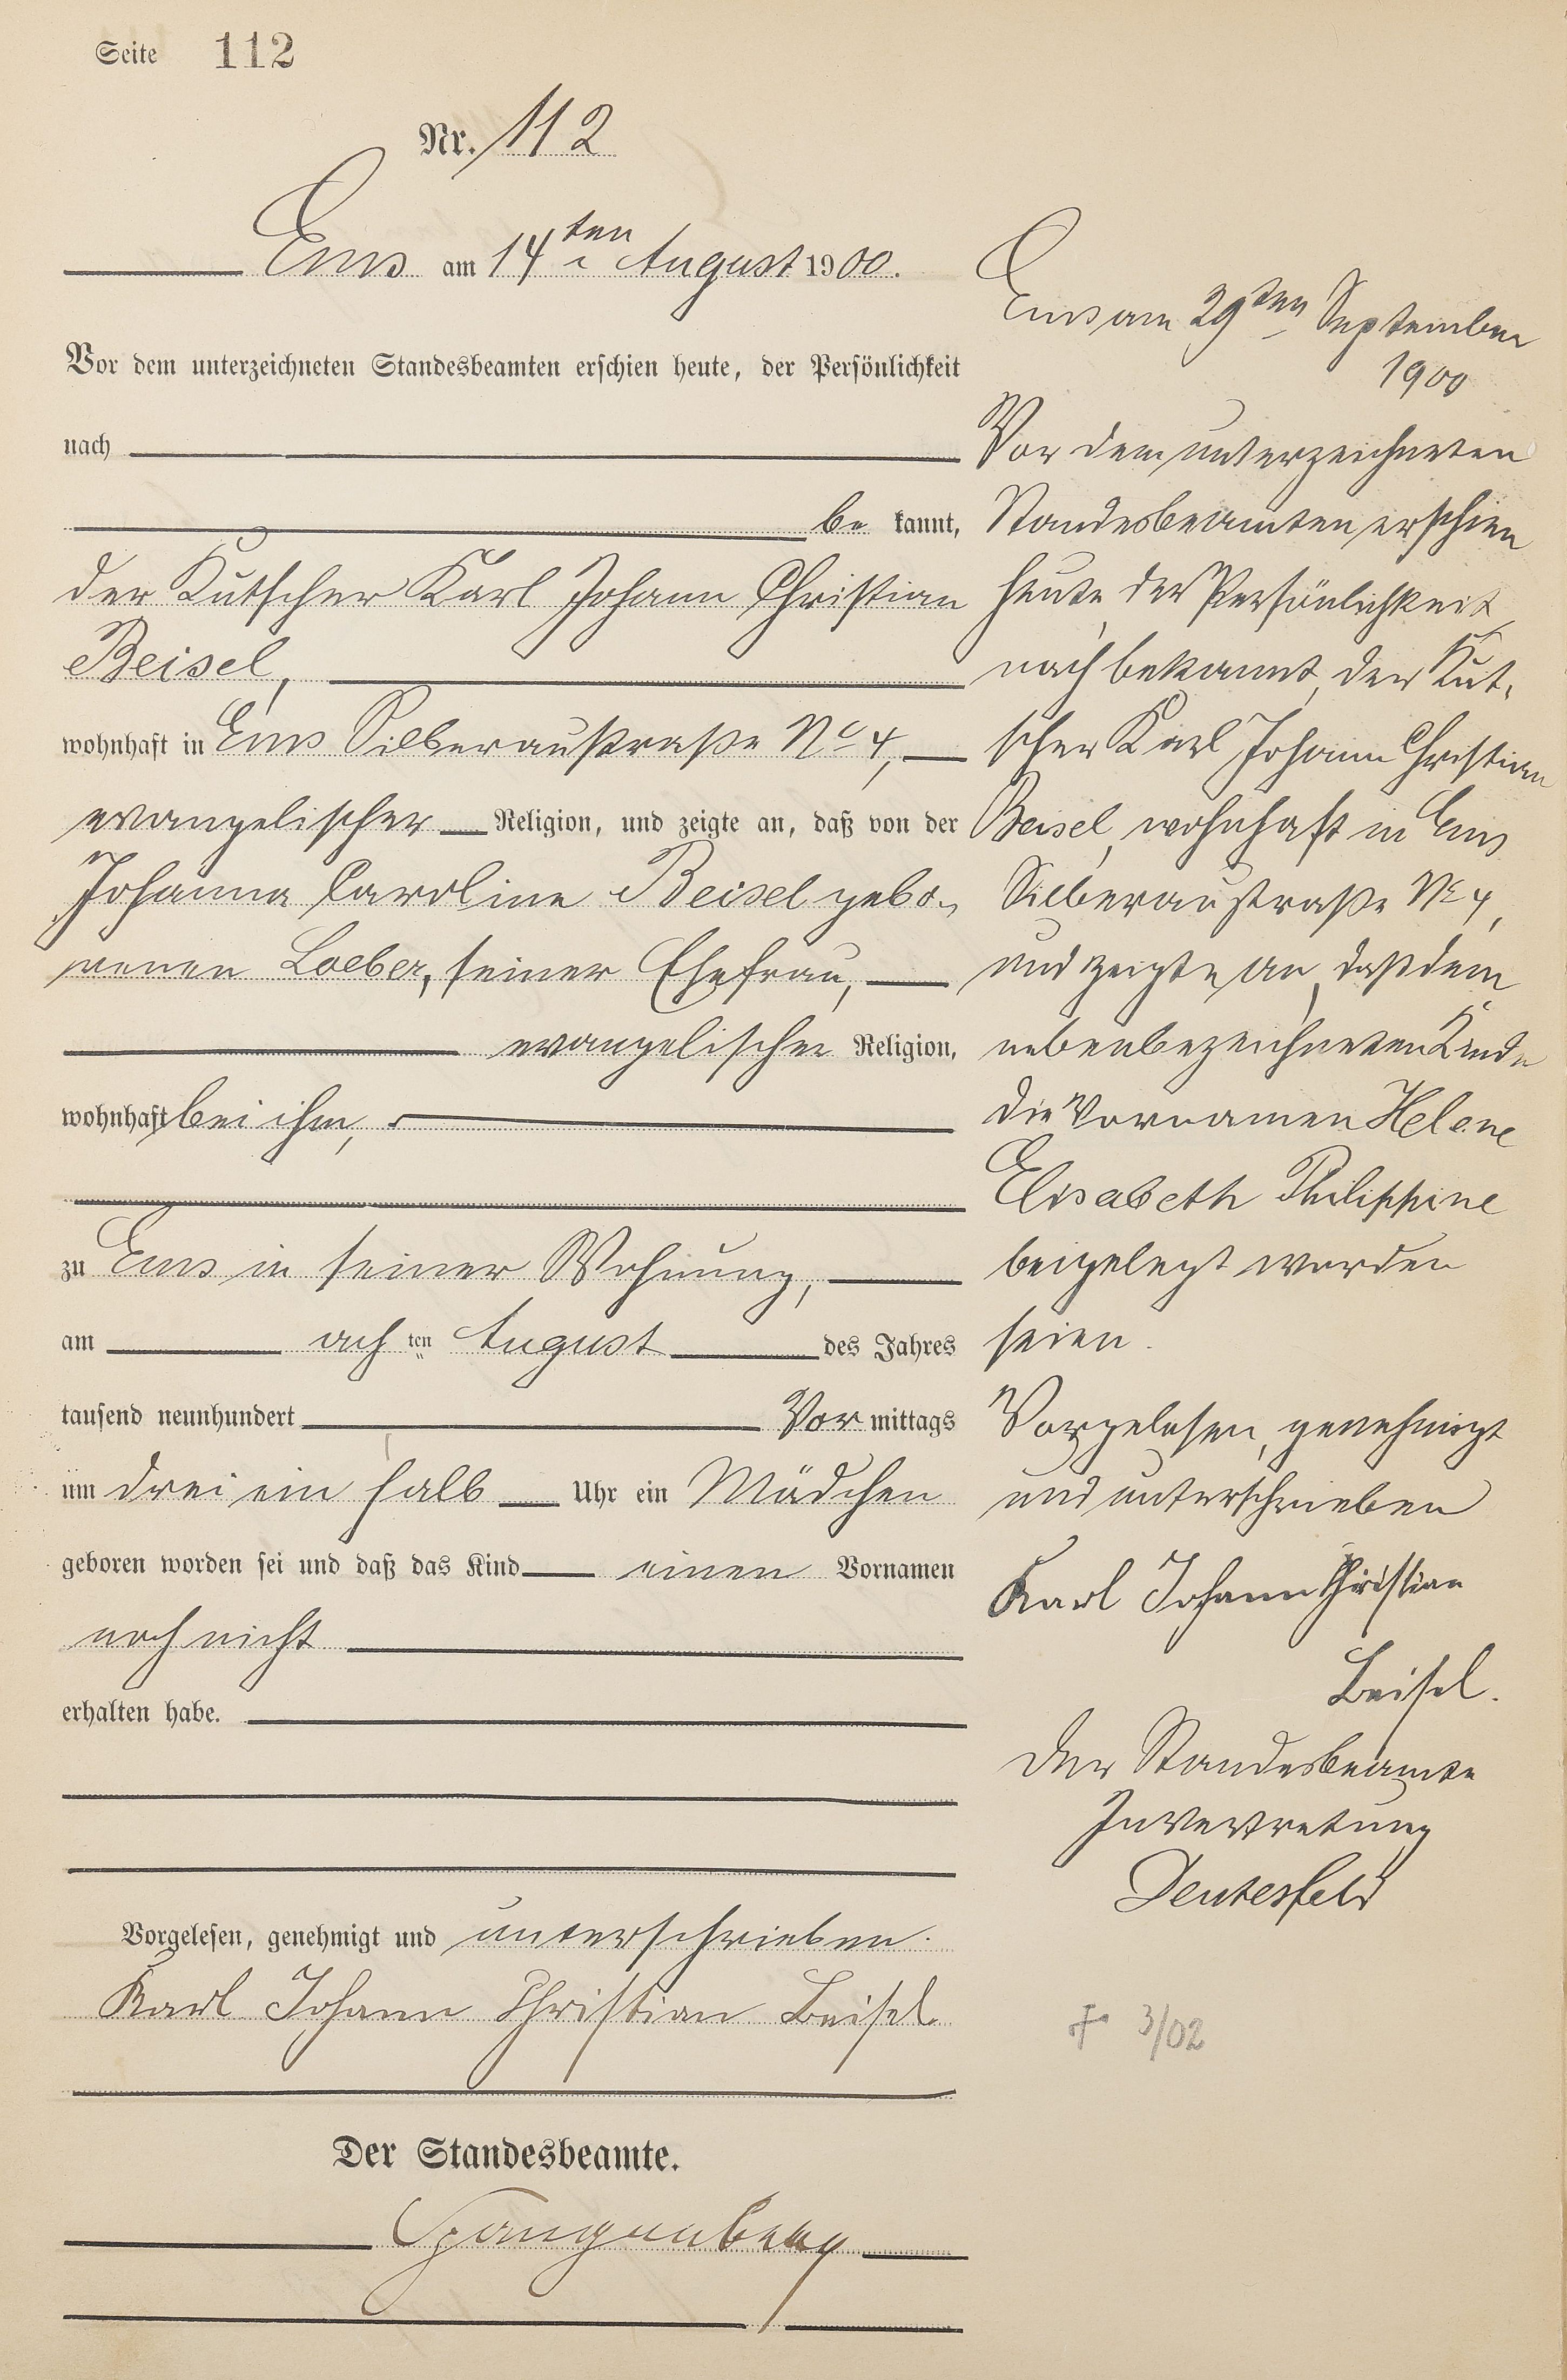 Seite 112
Nr. 112
Ems am 14ten August 1900.
Vor dem unterzeichneten Standesbeamten erschien heute, der Persönlichkeit
nach
be kannt,
der Kutscher Karl Johann Christian
Beisel,
wohnhaft in Ems Silberaustraße No 4,
evangelischer Religion, und zeigte an, daß von der
Johanna Caroline Beisel gebo-
renen Loeber, seiner Ehefrau,
evangelischer Religion,
wohnhaft bei ihm,
zu Ems in seiner Wohnung,
am ach ten August des Jahres
tausend neunhundert Vor mittags
um drei ein halb Uhr ein Mädchen
geboren worden sei und daß das Kind einen Vornamen
noch nicht
erhalten habe.
Vorgelesen, genehmigt und unterschrieben.
Karl Johann Christian Beisel.
Der Standesbeamte.
Spangenberg
Ems am 29ten September
1900
Vor dem unterzeichneten
Standesbeamten erschien
heute, der Persönlichkeit
nach bekannt, der Kut-
scher Karl Johann Christian
Beisel, wohnhaft in Ems
Silberaustraße No 4,
und zeigte an, daß dem
nebenbezeichneten Kinde
die Vornamen Helene
Elisabeth Philippine
beigelegt worden
seien.
Vorgelesen, genehmigt
und unterschrieben
Karl Johann Christian
Beisel.
Der Standesbeamte
In Vertretung
Deutesfeld
† 3/02